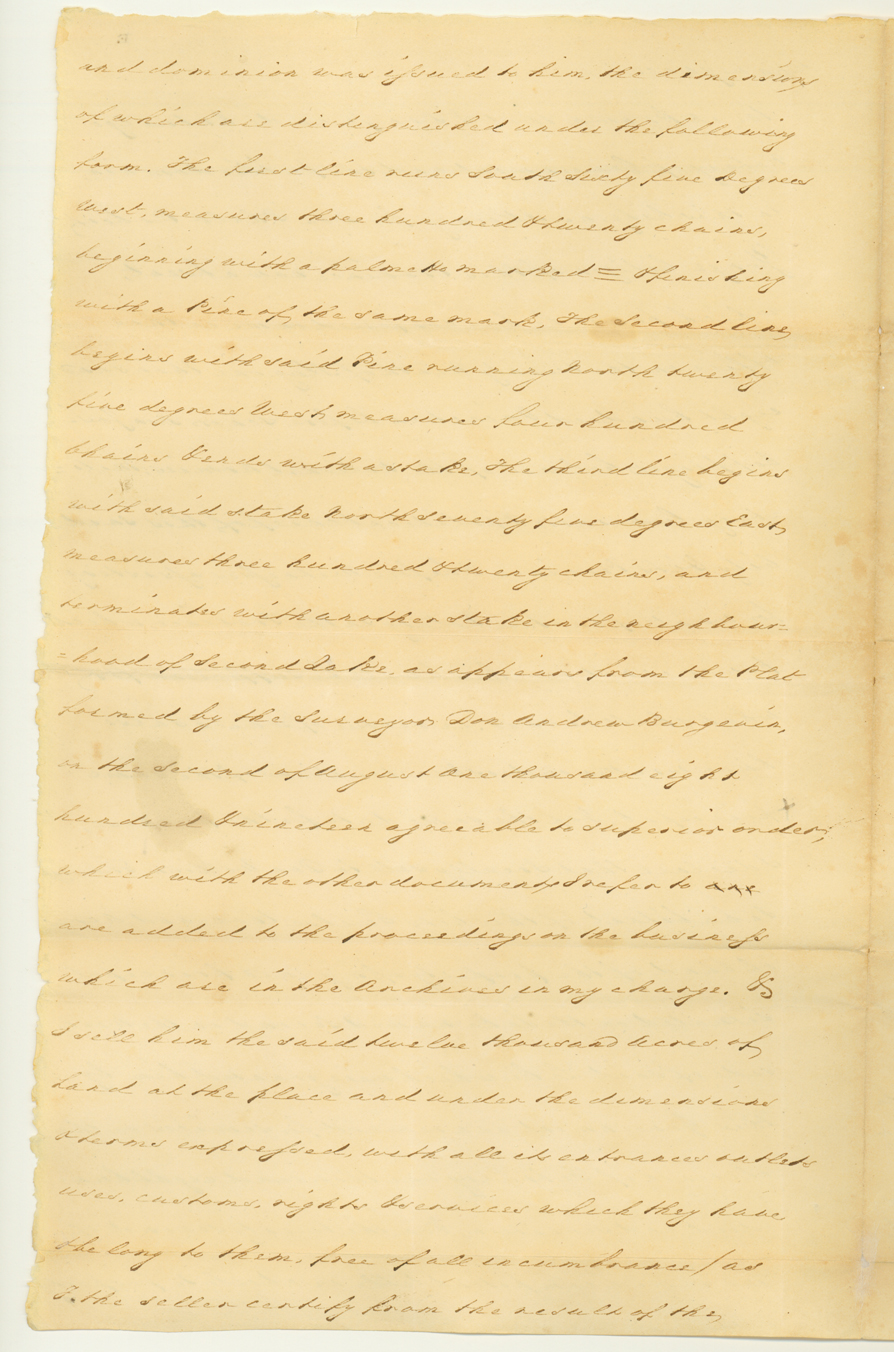 and dominion was issued to him, the dimensions
of which are distinguished under the following
form. The first line runs South Sixty five Degrees
West, measures three hundred & twenty chains,
beginning with a palmetto marked ≡ & finishing
with a Pine of the same mark, The Second line
begins with said Pine running North twenty
five degrees West, measures four hundred
Chains & ends with a stake, The third line begins
with said stake North seventy five degrees East,
measures three hundred & twenty chains, and
terminates with another stake in the neighbour=
=hood of Second Lake, as appears from the Plat
formed by the Surveyor Don Andrew Burgevin,
on the Second of August One thousand eight
hundred & nineteen agreeable to superior order;
which with the other documents I refer to are
are added to the proceedings on the business
which are in the Archives in my charge. &
I sell him the said twelve thousand Acres of
Land at the place and under the dimensions
& terms expressed, with all its entrances outlets
uses, customs, rights & services which they have
& belong to them, free of all incumbrance / as
I the seller certify from the result of the